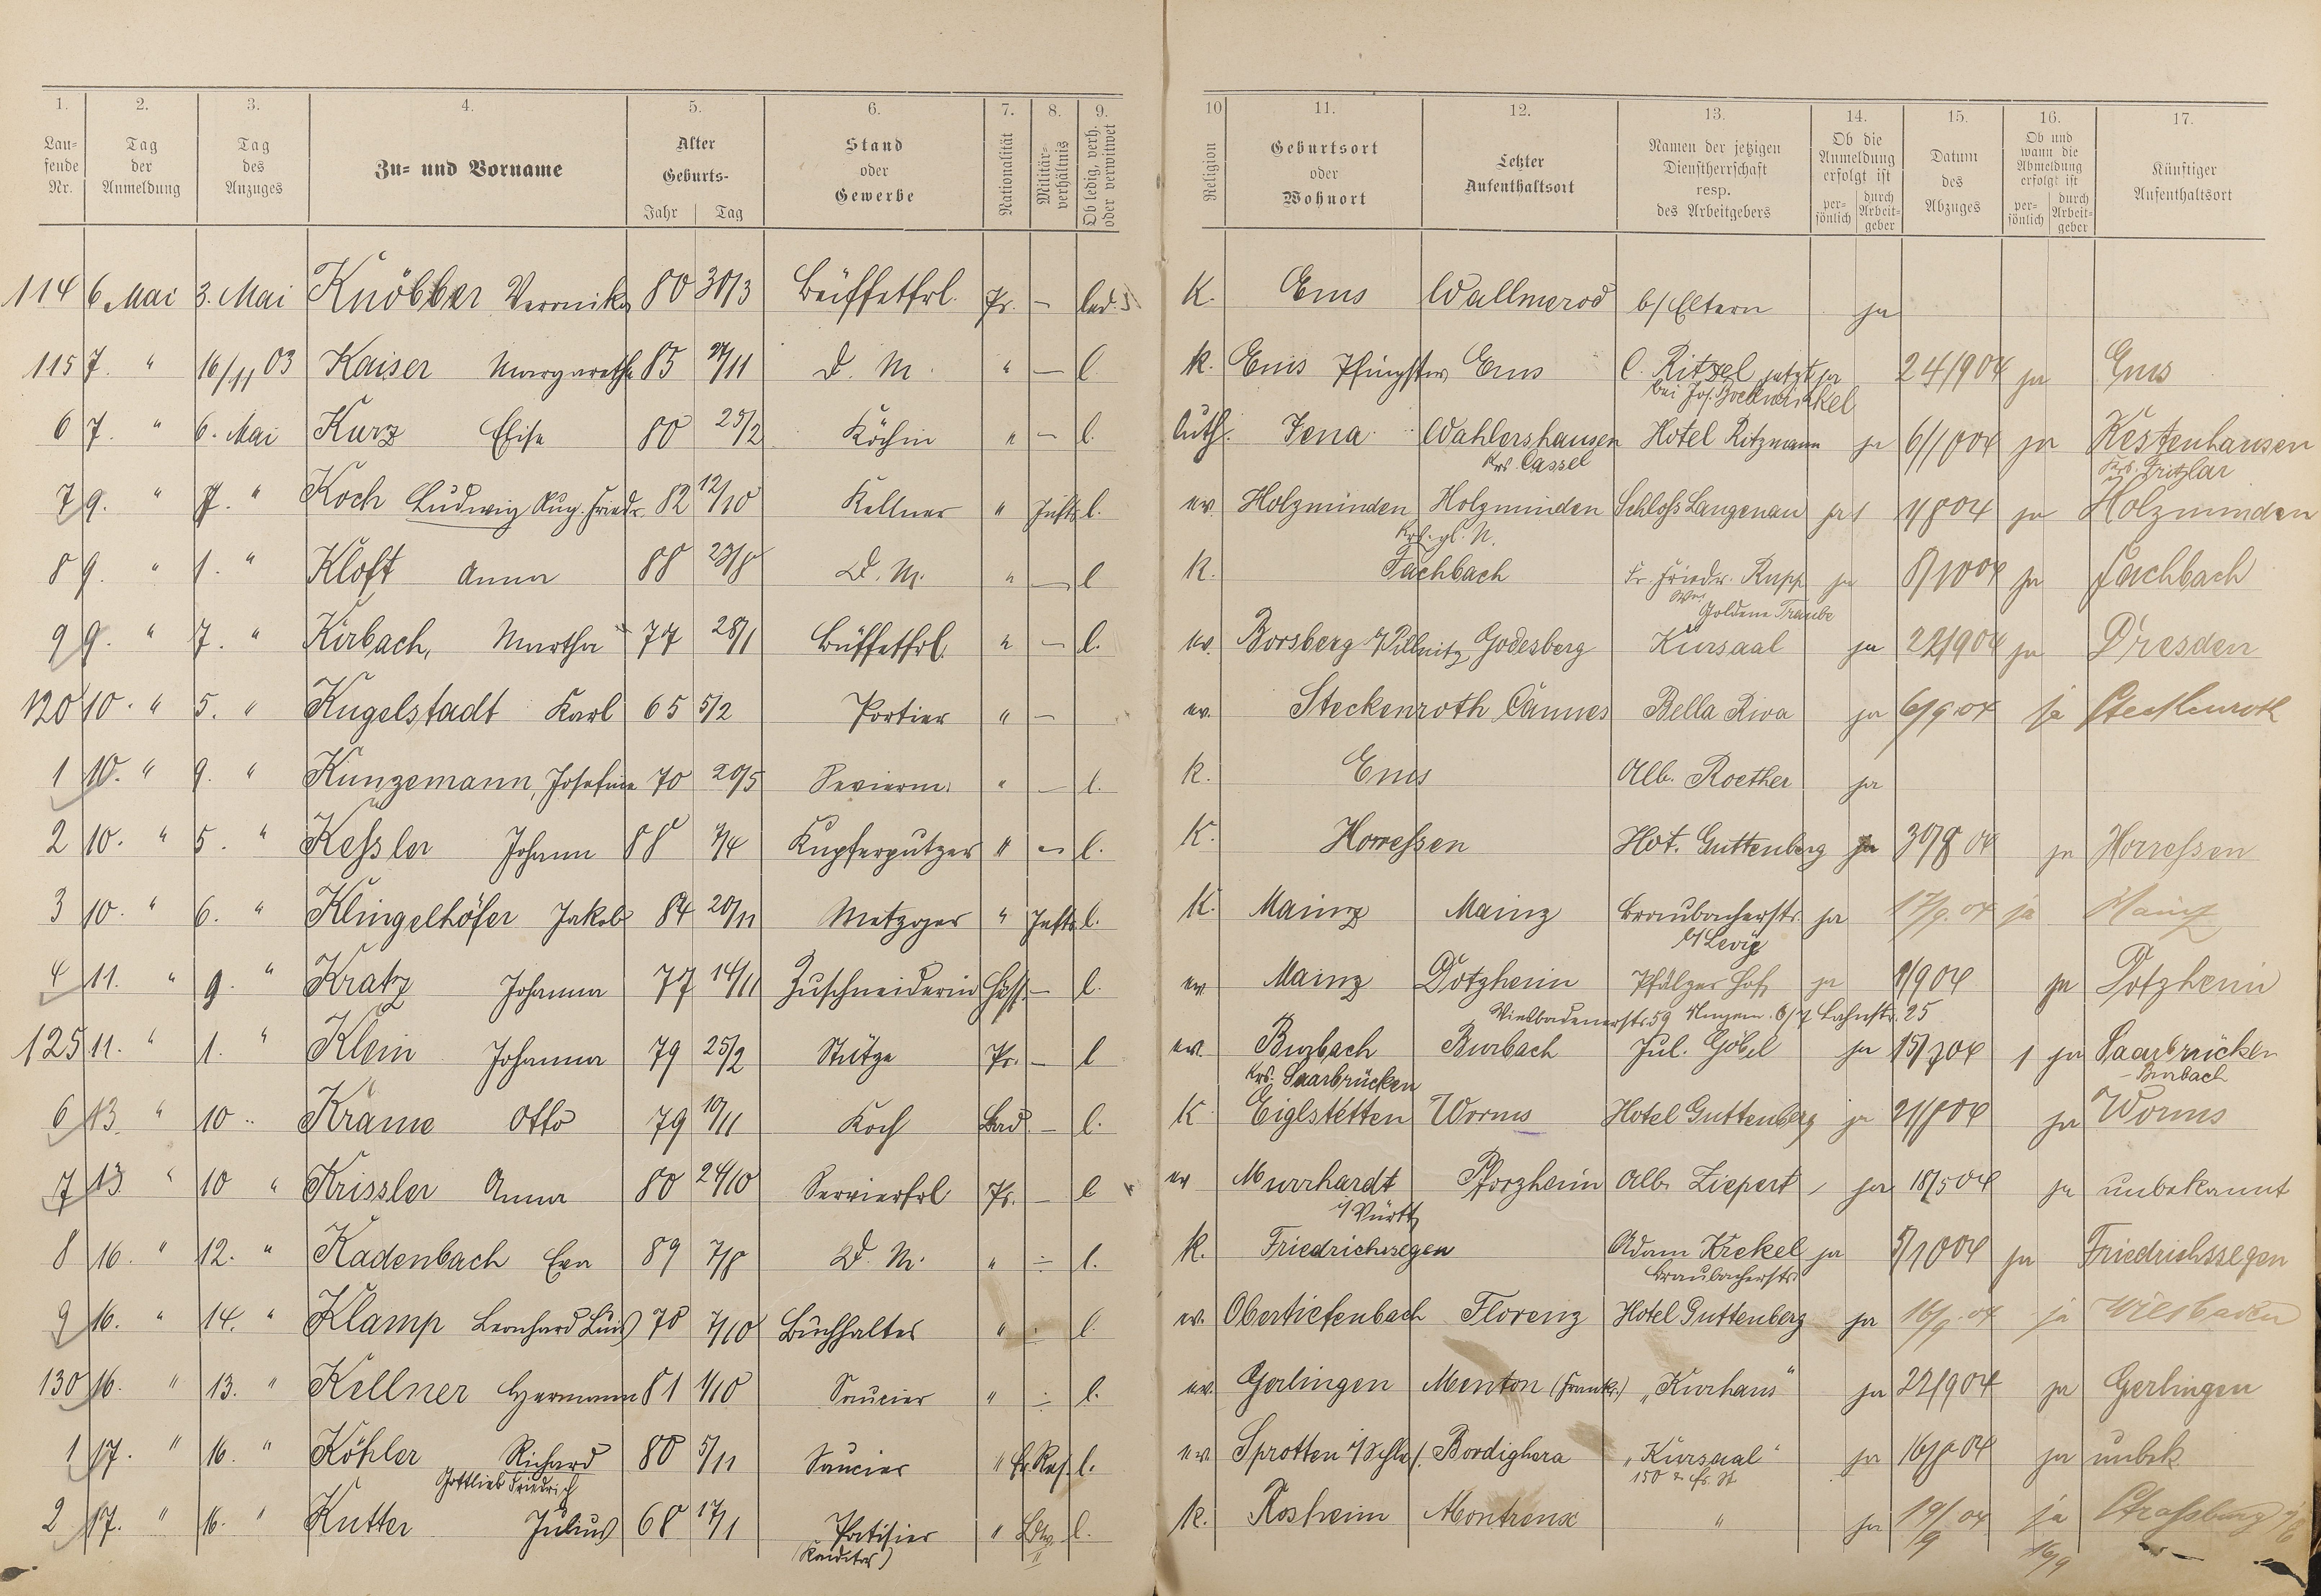 1. 2. 3. 4. 5. 6. 7. 8. 9. 10 11. 12. 13. 14. 15. 16. 17.
Lau-
fende
Nr.
Tag
der
Anmeldung
Tag
des
Anzuges
Zu- und Vorname
Alter
Geburts-
Jahr Tag
Stand
oder
Gewerbe
Nationalität
Militär-
verhältnis
Ob ledig, verh.
oder verwitwet
Religion
Geburtsort
oder
Wohnort
Letzter
Aufenthaltsort
Namen der jetzigen
Dienstherrschaft
resp.
des Arbeitgebers
Ob die
Anmeldung
erfolgt ist
per-
sönlich
durch
Arbeit-
geber
Datum
des
Abzuges
Ob und
wann die
Abmeldung
erfolgt ist
per-
sönlich
durch
Arbeit-
geber
Künftiger
Aufenthaltsort
114 6. Mai 3. Mai Knöbber Veronika 80 30/3 Büffetfrl. Pr. — led. K. Ems Wallmerod b/Eltern ja
115 7. " 16/11 03 Kaiser Margarethe 85 /11 D. M. " — l. k. Ems Pfingstw. Ems C. Ritzel jetzt ja 24/9 04 ja Ems
bei Jos. Bockwinkel
6 7. " 6. Mai Kurz Elise 80 25/2 Köchin " — l. Luth. Jena Wahlershausen Hotel Ritzmann ja 6/10 04 ja Kestenhausen
Krs. Cassel
Krs. Fritzlar
7 9. " 7. " Koch Ludwig Aug. Friedr. 82 12/10 Kellner " l. ev. Holzminden Holzminden Schloß Langenau ja 1 1/8 04 ja Holzminden
Krs. gl. N.
8 9. " 1. " Kloft Anna 88 23/8 D. M. " — l K. Fachbach Fr. Friedr. Rupp ja 8/10 04 ja Fachbach
Goldene Traube
9 9. " 7. " Kirbach, Martha 77 28/1 Büffetfrl. " — l. ev. Borsberg b/Pillnitz Godesberg Kursaal ja 22/9 04 ja Dresden
120 10. " 5. " Kugelstadt Karl 65 5/2 Portier " — ev. Steckenroth Cannes Bella Riva ja 6/9 04 ja Steckenroth
1 10. " 9. " Kunzemann, Josefine 70 20/5 " — l. k. Ems Alb. Roether ja
2 10. " 5. " Keßler Johann 88 /4 Kupferputzer " — l. K. Horreßen Hot. Guttenberg ja 30/8 04 ja Horreßen
3 10. " 6. " Klingelhöfer Jakob 84 20/11 Metzger " l. K. Mainz Mainz Braubacherstr. ja 17/9. 04 ja Mainz
b/Levig
4 11. " 9. " Kratz Johanna 77 14/11 Zuschneiderin Hess. — l. ev. Mainz Dotzheim Pfälzer Hof ja 1/9 04 ja Dotzheim
Wiesbadenerstr. 59 Lahnstr. 25
125 11. " 1. " Klein Johanna 79 25/2 Stütze Pr. — l ev. Burbach Burbach Jul. Göbel ja 15/7 04 1 ja Saarbrücken
Krs. Saarbrücken
- Burbach
6 13. " 10 " Krame Otto 79 10/11 Koch Bad. — l. K Eiglstetten Worms Hotel Guttenberg ja 21/8 04 ja Worms
7 13. " 10 " Krissler Anna 80 24/10 Servierfrl Pr. — l ev Murrhardt Pforzheim Alb. Ziepert ja 18/5 04 ja unbekannt
i/Württ
8 16. " 12. " Kadenbach Eva 89 7/8 D. M. " ÷ l. k. Friedrichssegen Adam Krekel ja 5/10 04 ja Friedrichssegen
Braubacherstr.
9 16. " 14. " Klamp Leonhard Luis 78 7/10 Buchhalter " ÷ l. ev. Obertiefenbach Florenz Hotel Guttenberg ja 16/9. 04 ja Wiesbaden
130 16. " 13. " Kellner Hermann 81 1/10 Saucier " ÷ l. ev. Gerlingen Menton (Frankr.) „Kurhaus" ja 22/9 04 ja Gerlingen
1 17. " 16. " Köhler Richard 80 5/11 Saucier " l. ev. Sprotten i/Schles. Bordighera „Kursaal" ja 16/8 04 ja unbek
Gottlieb Friedrich
2 17. " 16. " Kutter Julius 68 17/1 Patisier " Ldw. l. k. Rosheim Montreux " ja 19/9 04 ja Straßburg
(Konditor) II 16/9